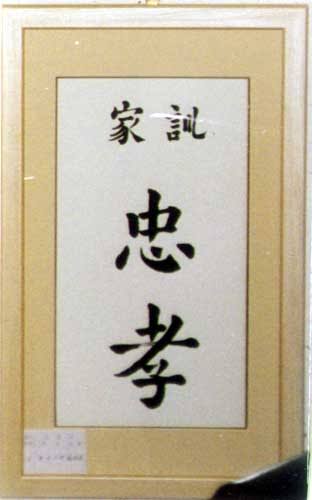 家訓
忠
孝